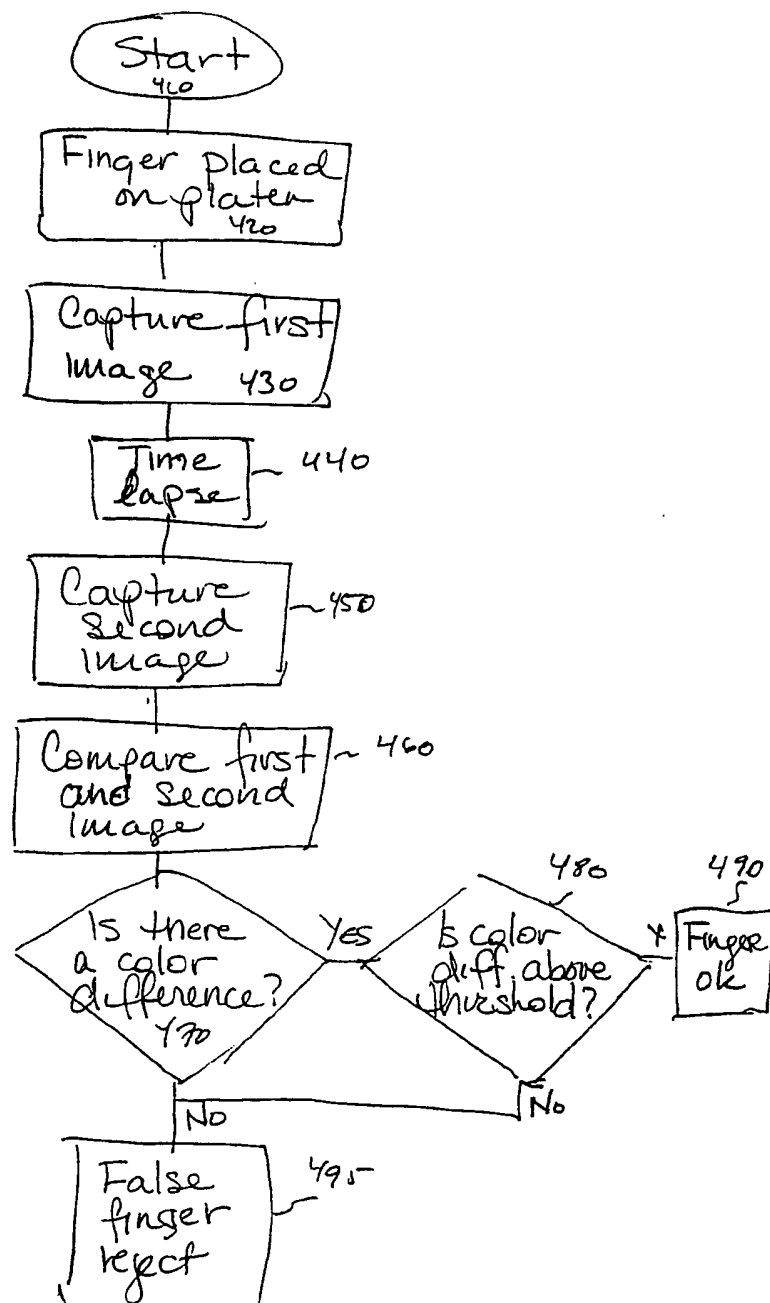 Start
410
Finger placed
on platen
420
Capture first
Image 430
Time
lapse
440
Capture
Second
Image
450
Compare first
and second
Image
460
Is there
a color
difference?
470
Yes
Is color
diff. above
threshold?
480
Y
Finger
ok
490
No
No
False
finger
reject
495